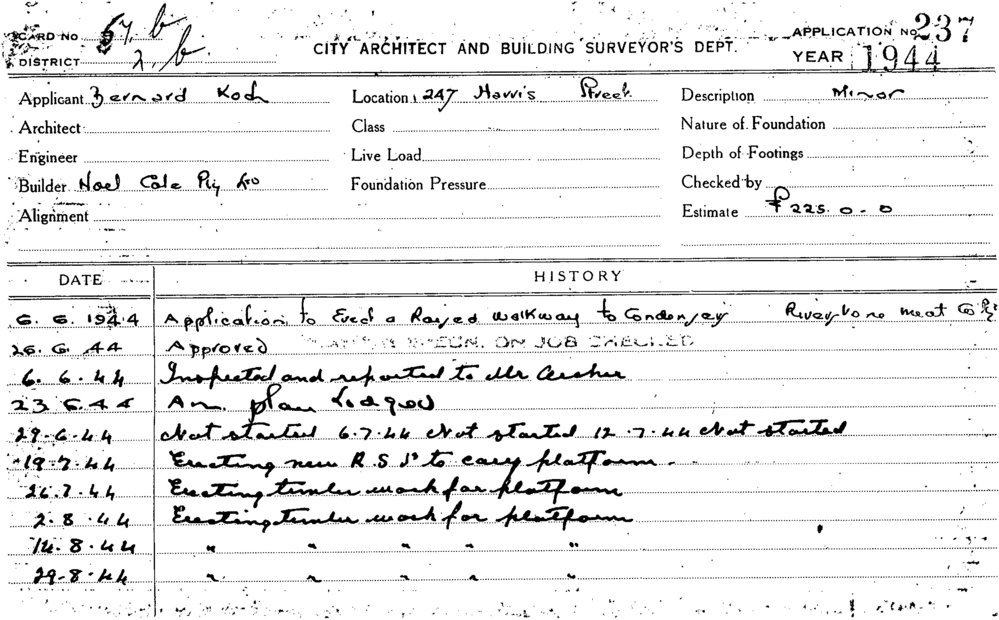 CARD NO 57.b APPLICATION No. 237
DISTRICT 2.b CITY ARCHITECT AND BUILDING SURVEYOR'S DEPT. YEAR 1944
Applicant Bernard Koch Location 247 Harris Street Description Minor
Architect Class Nature of Foundation
Engineer Live Load Depth of Footings
Builder Noel Cale Pty Foundation Pressure Checked by
Alignment Estimate £225.0.0
DATE HISTORY
6.6.1944 Application to Erect a Raised walkway to Condenser Riverstone meat Co
26.6.44 Approved PLAN SPECN. ON JOB CHECKED
6.6.44 Inspected and reported to Mr Archer
23.6.44 Am. plan Lodged
29.6.44 Not started 6.7.44 Not started 12.7.44 Not started
19.7.44 Erecting new R.S.J's to cary platform
26.7.44 Erecting timber work for platform
2.8.44 Erecting timber work for platform
14.8.44 " " " " "
29.8.44 " " " " "